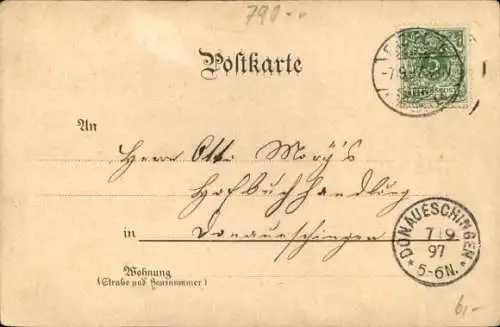 790.--
Postkarte
-7.9.97
An
Herrn Otto Mory's
Hofbuchhandlung
in Donaueschingen
DONAUESCHINGEN
7 9
97
5-6N.
Wohnung
(Straße und Hausnummer)
6,-